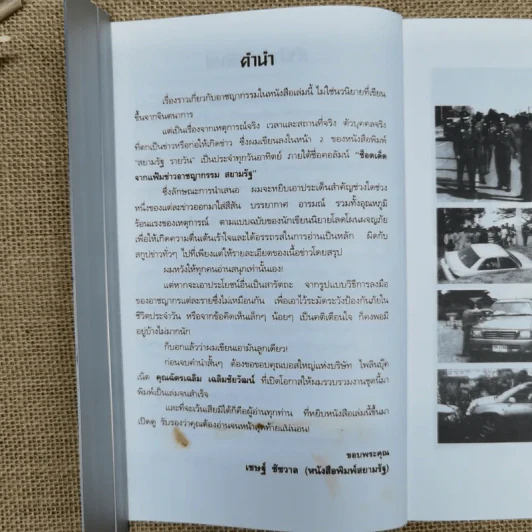 คำนำ
เรื่องราวเกี่ยวกับอาชญากรรมในหนังสือเล่มนี้ ไม่ใช่นวนิยายที่เขียน
ขึ้นจากจินตนาการ
แต่เป็นเรื่องจากเหตุการณ์จริง เวลาและสถานที่จริง ตัวบุคคลจริง
ที่ตกเป็นข่าวหรือก่อให้เกิดข่าว ซึ่งผมเขียนลงในหน้า 2 ของหนังสือพิมพ์
"สยามรัฐ รายวัน" เป็นประจำทุกวันอาทิตย์ ภายใต้ชื่อคอลัมน์ "ช็อตเด็ด
จากแฟ้มข่าวอาชญากรรม สยามรัฐ"
ซึ่งลักษณะการนำเสนอ ผมจะหยิบเอาประเด็นสำคัญช่วงใดช่วง
หนึ่งของแต่ละข่าวออกมาใส่สีสัน บรรยากาศ อารมณ์ รวมทั้งอุณหภูมิ
ร้อนแรงของเหตุการณ์ ตามแบบฉบับของนักเขียนนิยายโลดโผนผจญภัย
เพื่อให้เกิดความตื่นเต้นเร้าใจและได้อรรถรสในการอ่านเป็นหลัก ผิดกับ
สกู๊ปข่าวทั่วๆ ไปที่เพียงแต่ให้รายละเอียดของเนื้อข่าวโดยสรุป
ผมหวังให้ทุกคนอ่านสนุกเท่านั้นเอง!
แต่หากจะเอาประโยชน์อื่นเป็นสารัตถะ จากรูปแบบวิธีการลงมือ
ของอาชญากรแต่ละรายซึ่งไม่เหมือนกัน เพื่อเอาไว้ระมัดระวังป้องกันภัยใน
ชีวิตประจำวัน หรือจากข้อคิดเห็นเล็กๆ น้อยๆ เป็นคติเตือนใจ ก็คงพอมี
อยู่บ้างไม่มากนัก
ก็บอกแล้วว่าผมเขียนเอามันลูกเดียว!
ก่อนจบคำนำสั้นๆ ต้องขอขอบคุณบอสใหญ่แห่งบริษัท ไพลินบุ๊ค
เน็ต คุณฉัตรเฉลิม เฉลิมชัยวัฒน์ ที่เปิดโอกาสให้ผมรวบรวมงานชุดนี้มา
พิมพ์เป็นเล่มจนสำเร็จ
และที่จะเว้นเสียมิได้ก็คือผู้อ่านทุกท่าน ที่หยิบหนังสือเล่มนี้ขึ้นมา
เปิดดู รับรองว่าคุณต้องอ่านจนหน้าสุดท้ายแน่นอน!
ขอบพระคุณ
เชษฐ์ ชัชวาล (หนังสือพิมพ์สยามรัฐ)